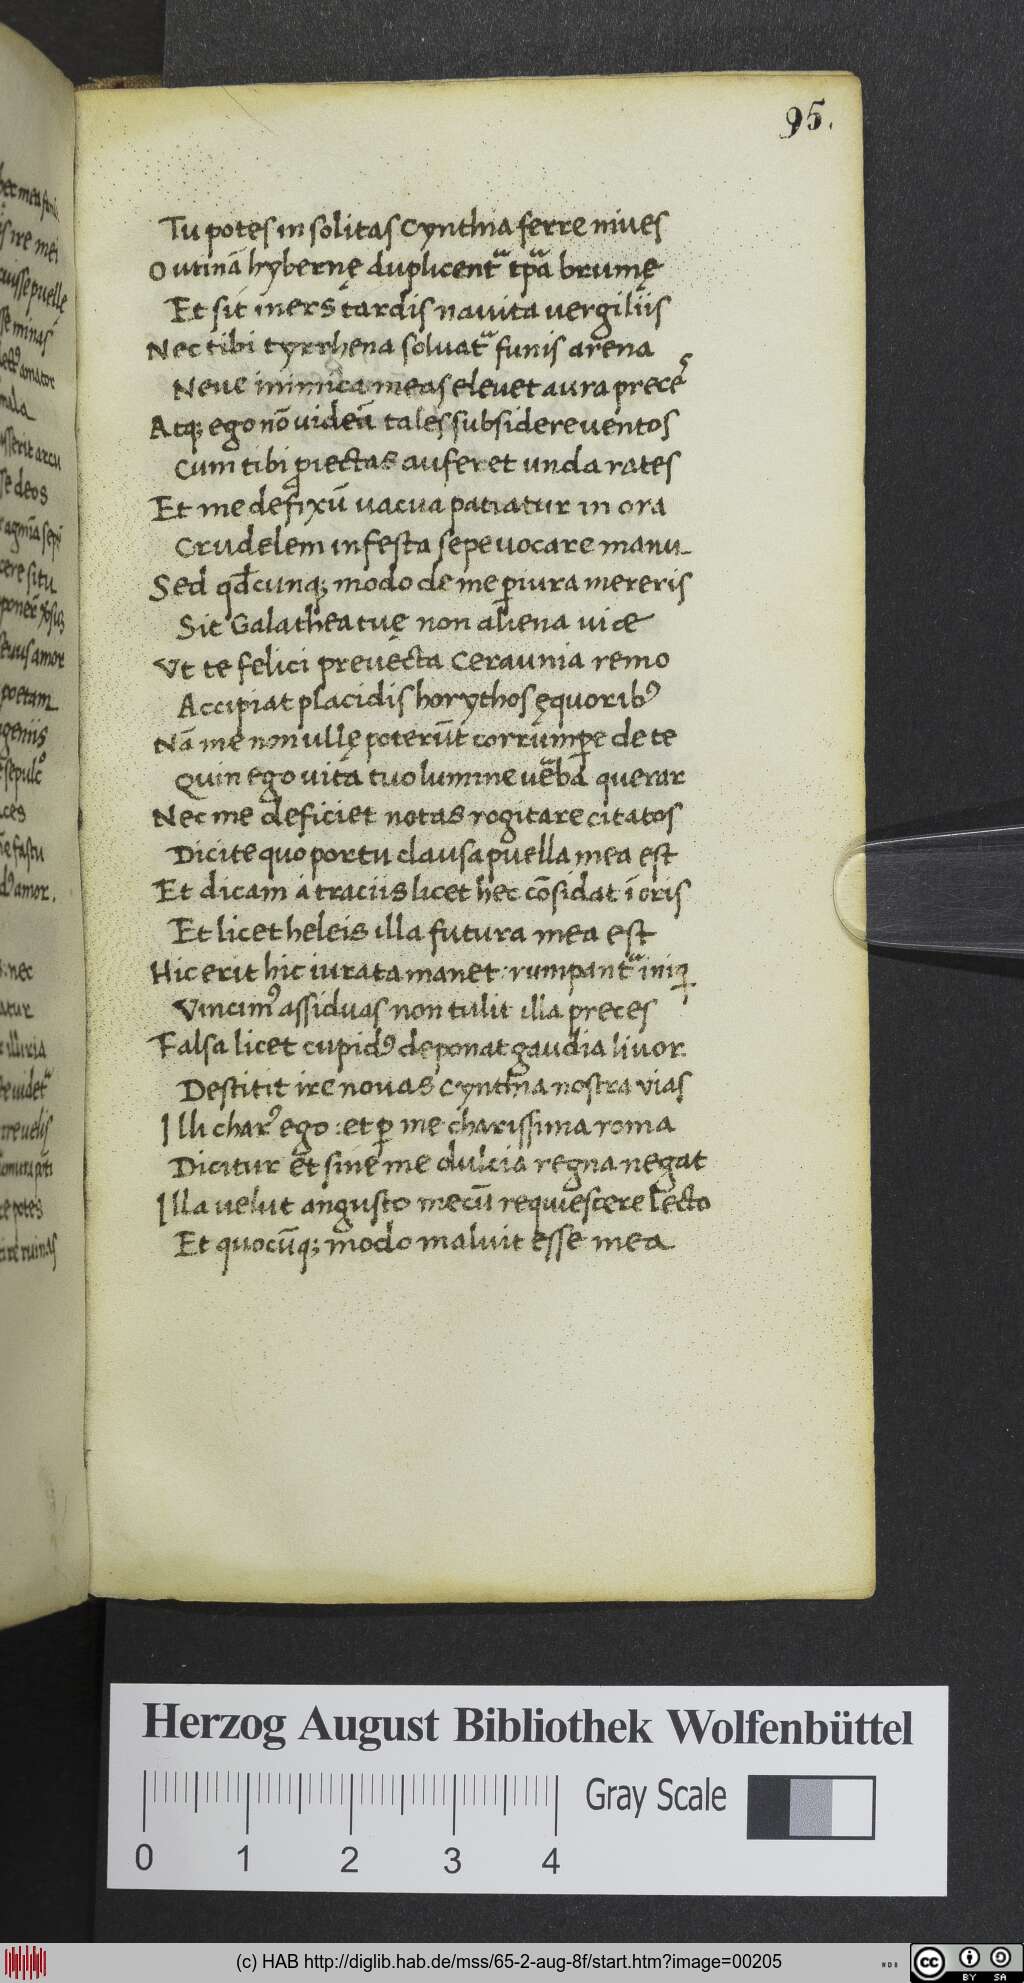 95.
Tu potes in solitas Cynthia ferre niues
O utinā hybernę duplicentᷣ tp̄a brumę
Et sit iners tardis nauita vergiliis
Nec tibi tyrrhena soluatᷣ funis arena
Neue inimica meas eleuet aura preces
Atq; ego nō videā tales subsidere ventos
Cum tibi ꝓiectas auferet unda rates
Et me defixū vacua patiatur in ora
Crudelem infesta sepe uocare manu
Sed qd̄cunq; modo de me ꝑiura mereris
Sit Galathea tuę non aliena vice
Vt te felici preuecta Ceraunia remo
Accipiat placidis horythos ęquoribꝰ
Nā me non ullę poterūt corrumꝑe de te
Quin ego vitā tuo lumine ueba querar
Nec me deficiet notas rogitare citatos
Dicite quo portu clausa puella mea est
Et dicam a traciis licet hec cōsidat ī oris
Et licet heleis illa futura mea est
Hic erit hic iurata manet: rumpantᷣ iniq
Vincimꝰ assiduas non tulit illa preces
Falsa licet cupidꝰ deponat gaudia liuor
Destitit ire nouas Cynthia nostra vias
Illi charꝰ ego: et ꝑ me charissima roma
Dicitur et sine me dulcia regna negat
Illa uelut angusto mecū requiescere lecto
Et quocūq; modo maluit esse mea
Herzog August Bibliothek Wolfenbüttel
0 1 2 3 4
Gray Scale
(c) HAB http://diglib.hab.de/mss/65-2-aug-8f/start.htm?image=00205
cc BY SA